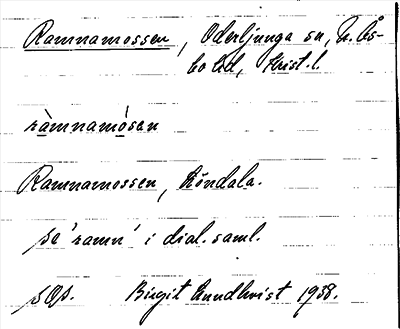 Ramnamossen, Oderljunga sn, N. Ås-
bo hd, Krist. l.
ràmnamósen
Ramnamossen, Röndala.
se 'ramn' i dial. saml.
sOs. Birgit Lundkvist 1938.